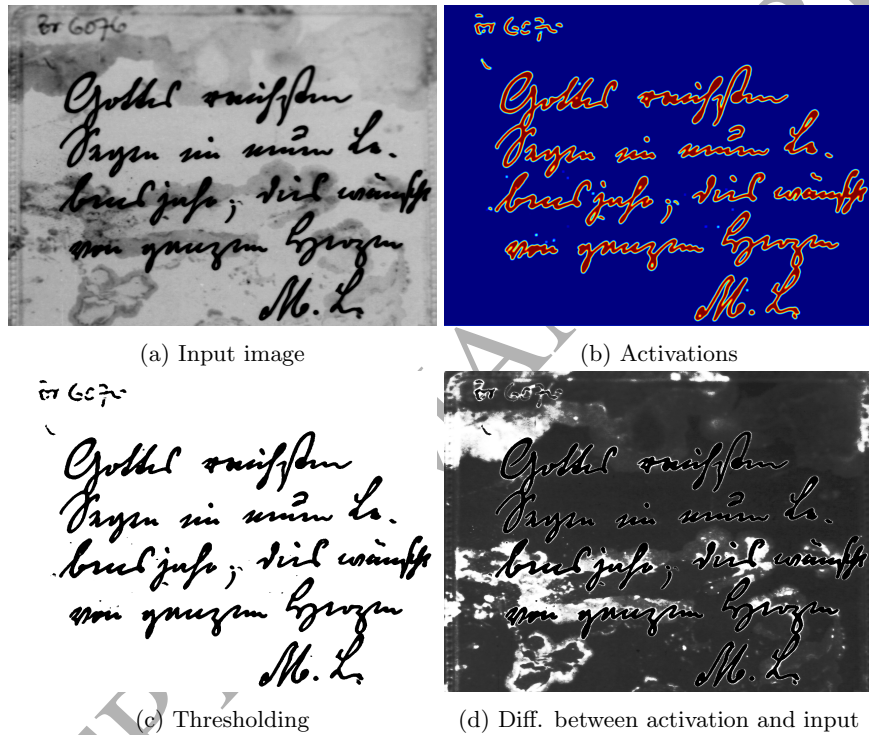 6076
Gottes reichsten
Segen im neuen Le-
bensjahr, dies wünscht
von ganzem Herzen
M. L.
(a) Input image
Gottes reichsten
Segen im neuen Le-
bensjahr, dies wünscht
von ganzem Herzen
M. L.
(b) Activations
Gottes reichsten
Segen im neuen Le-
bensjahr, dies wünscht
von ganzem Herzen
M. L.
(c) Thresholding
Gottes reichsten
Segen im neuen Le-
bensjahr, dies wünscht
von ganzem Herzen
M. L.
(d) Diff. between activation and input